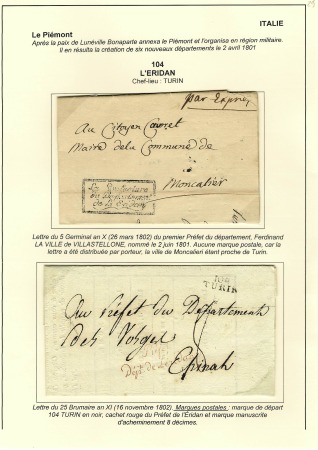 ITALIE
Le Piémont
Après la paix de Lunéville Bonaparte annexa le Piémont et l'organisa en région militaire.
Il en résulta la création de six nouveaux départements le 2 avril 1801
104
L'ERIDAN
Chef-lieu : TURIN
par Exprès
Au Citoyen
Maire de la Commune de
Moncalier
Lettre du 5 Germinal an X (26 mars 1802) du premier Préfet du département, Ferdinand
LA VILLE de VILLASTELLONE, nommé le 2 juin 1801. Aucune marque postale, car la
lettre a été distribuée par porteur, la ville de Moncalieri étant proche de Turin.
104
TURIN
Au Préfet du Département
des Vosges
Epinal
Lettre du 25 Brumaire an XI (16 novembre 1802) Marques postales : marque de départ
104 TURIN en noir, cachet rouge du Préfet de l'Éridan et marque manuscrite
d'acheminement 8 décimes.